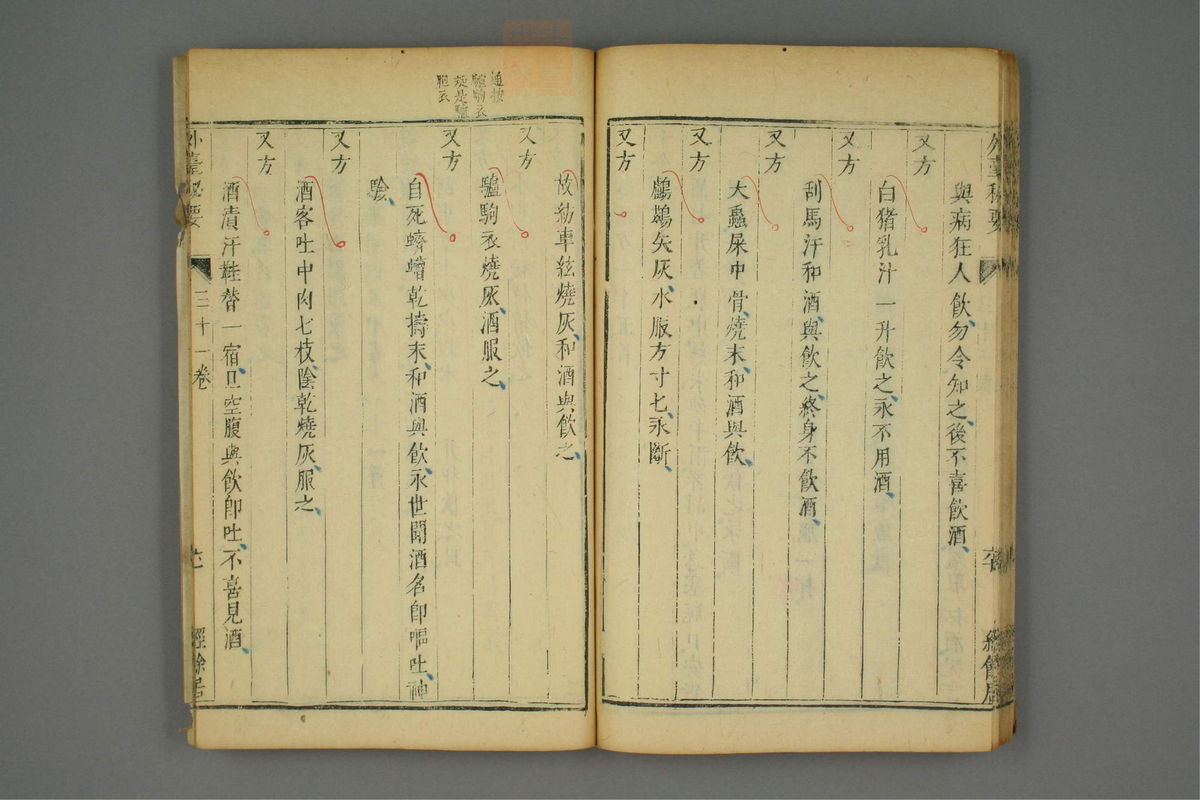 與病狂人飲勿令知之後不喜飲酒
又方
白猪乳汁一升飲之永不用酒
又方
刮馬汗和酒與飲之終身不飲酒
又方
大蟲屎中骨燒末和酒與飲
又方
鸕鷀矢灰水服方寸匕永斷
又方
故紡車絃燒灰和酒與飲之
又方
驢駒衣燒灰酒服之
又方
自死蠐螬乾擣末和酒與飲永世聞酒名卽嘔吐神
驗
又方
酒客吐中肉七枝陰乾燒灰服之
又方
酒漬汗鞋替一宿旦空腹與飲卽吐不喜見酒
外臺秘要
三十一卷
經餘居
外臺秘要
經餘居
驢駒衣
疑是驢
胞衣